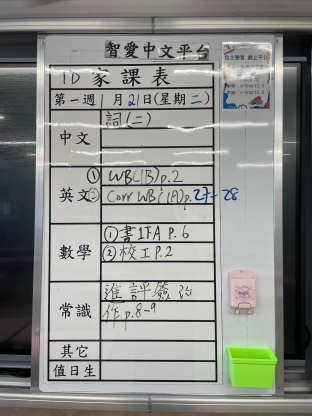 智愛中文平台
1D 家課表
第一週 1月21日(星期二)
中文
詞(二)
英文
① WB(1B)p.2
② Corr WB (1A)p.27-28
數學
① 書1下A P.6
② 校工 P.2
常識
進評簽改
作 p.8-9
其它
值日生